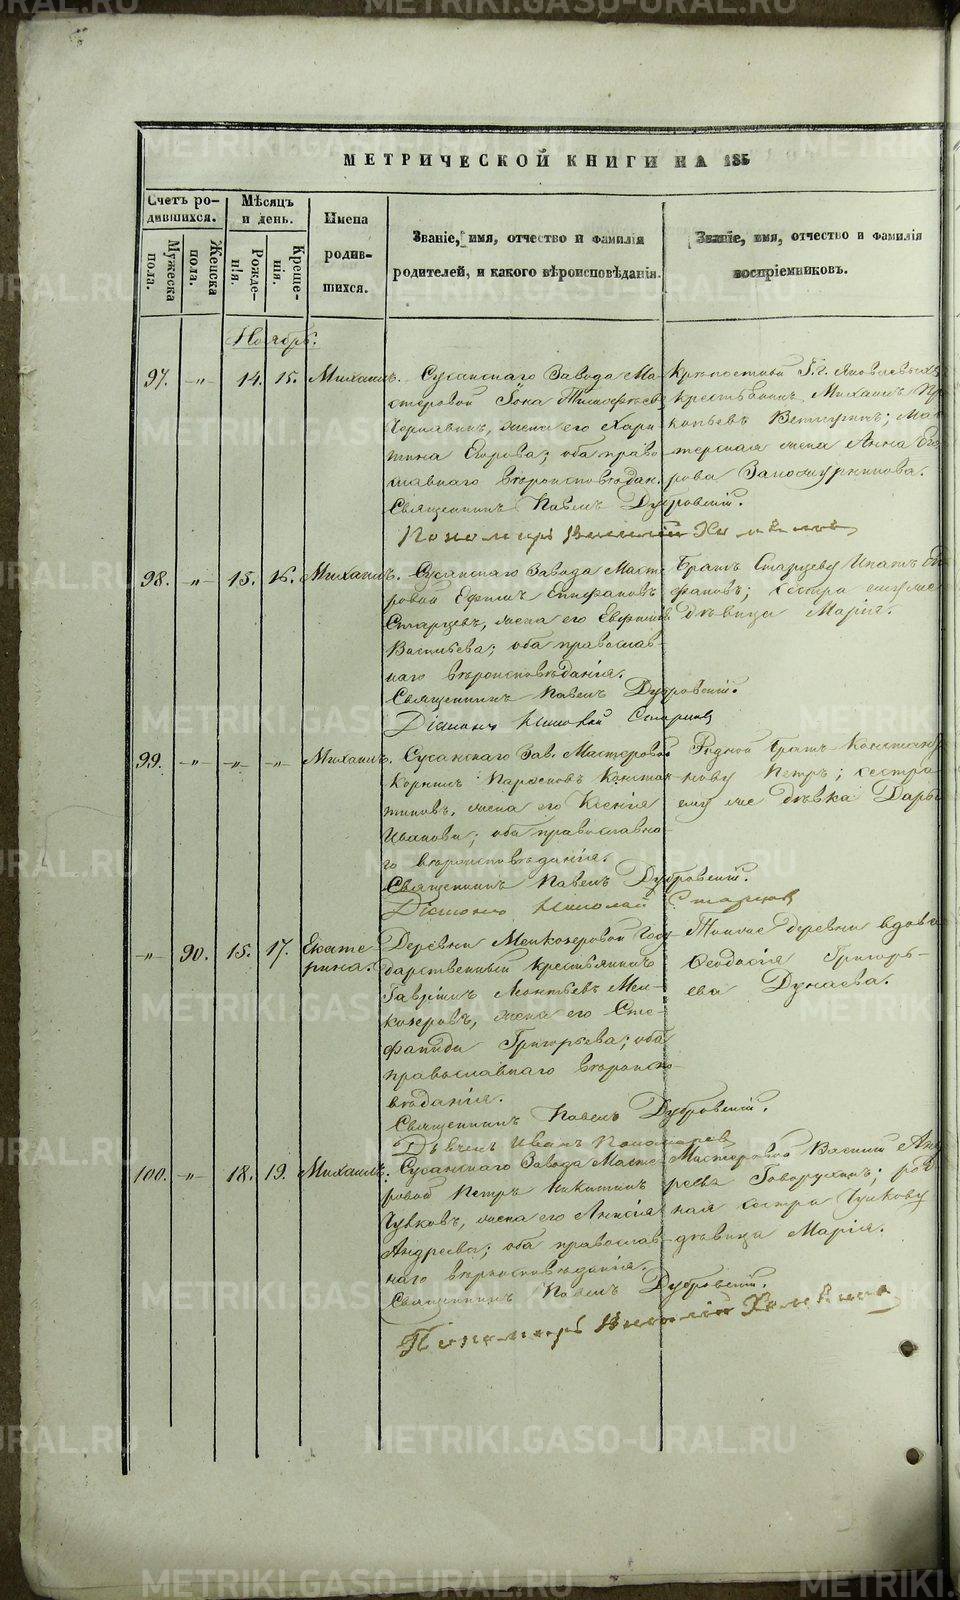 МЕТРИЧЕСКОЙ КНИГИ НА 185
Счетъ ро-
дившихся.
Мужеска
пола.
Женска
пола.
Мѣсяцъ
и день.
Рожде-
нія.
Креще-
нія.
Имена
родив-
шихся.
Званіе, имя, отчество и фамилія
родителей, и какого вѣроисповѣданія.
Званіе, имя, отчество и фамилія
воспріемниковъ.
Ноябрь.
97. -"- 14. 15. Михаилъ.
Сусанскаго Завода Ма-
стеровой Іона Тимофѣевъ
жена его Хари-
тина Егорова; оба право-
славнаго вѣроисповѣдан.
Священникъ Павелъ Дубровскій.
Пономарь
Крѣпостной Г.г. Яковлевыхъ
крестьянинъ Михаилъ Про-
копьевъ
жена Анна Его-
рова
98. -"- 15. 16. Михаилъ.
Сусанскаго Завода Масте-
ровой Ефимъ Епифановъ
Старцевъ, жена его
Васильева; оба православ-
наго вѣроисповѣданія.
Священникъ Павелъ Дубровскій.
Діаконъ Николай Старцовъ
Братъ Старцеву Игнатъ Епи-
фановъ; сестра ему же
дѣвица Марія.
99. -"- -"- -"- Михаилъ.
Сусанскаго Зав. Мастеровой
Корнилъ Констан-
тиновъ, жена его Ксенія
Иванова; оба православна-
го вѣроисповѣданія.
Священникъ Павелъ Дубровскій.
Діаконъ Николай Старцов
Родной братъ Константи-
нову Петръ; сестра
ему же дѣвка Дарья
-"- 90. 15. 17. Екате-
рина.
Деревни Мелкозеровой Госу-
дарственный крестьянинъ
Гавріилъ Леонтьевъ Мел-
козеровъ, жена его Сте-
фанида Григорьева; оба
православнаго вѣроиспо-
вѣданія.
Священникъ Павелъ Дубровскій.
Дьячекъ Иванъ Пономарев
Тойже деревни вдова
Ѳеодосія Григорь-
ева Дунаева.
100. -"- 18. 19. Михаилъ.
Сусанскаго Завода Масте-
ровой Петръ Никитинъ
жена его Анисія
Андреева; оба православ-
наго вѣроисповѣданія.
Священникъ Павелъ Дубровскій.
Пономарь
Мастеровой Василій Анд-
реевъ Говорухинъ; род-
ная сестра Чуркову
дѣвица Марія.
METRIKI.GASO-URAL.RU